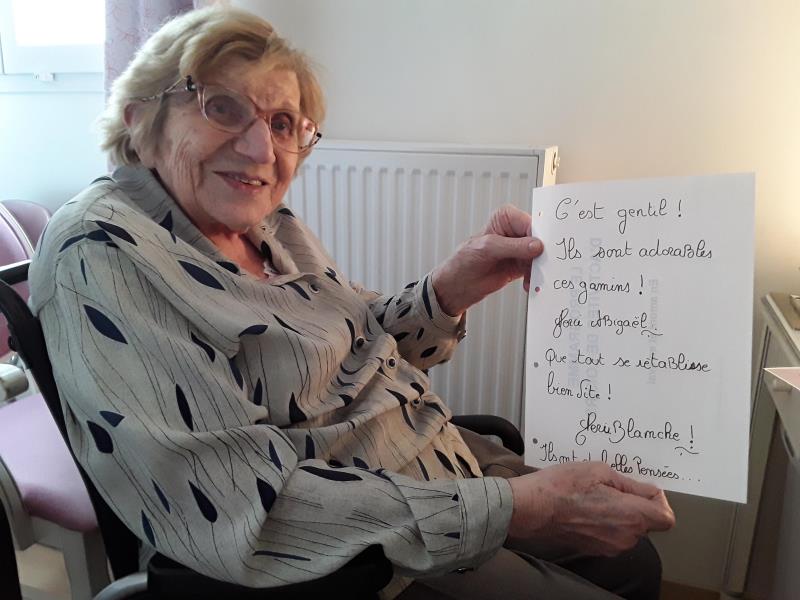 C'est gentil !
Ils sont adorables
ces gamins !
Merci Abigaël.
Que tout se rétablisse
bien vite !
Merci Blanche !
Ils ont de belles Pensées....